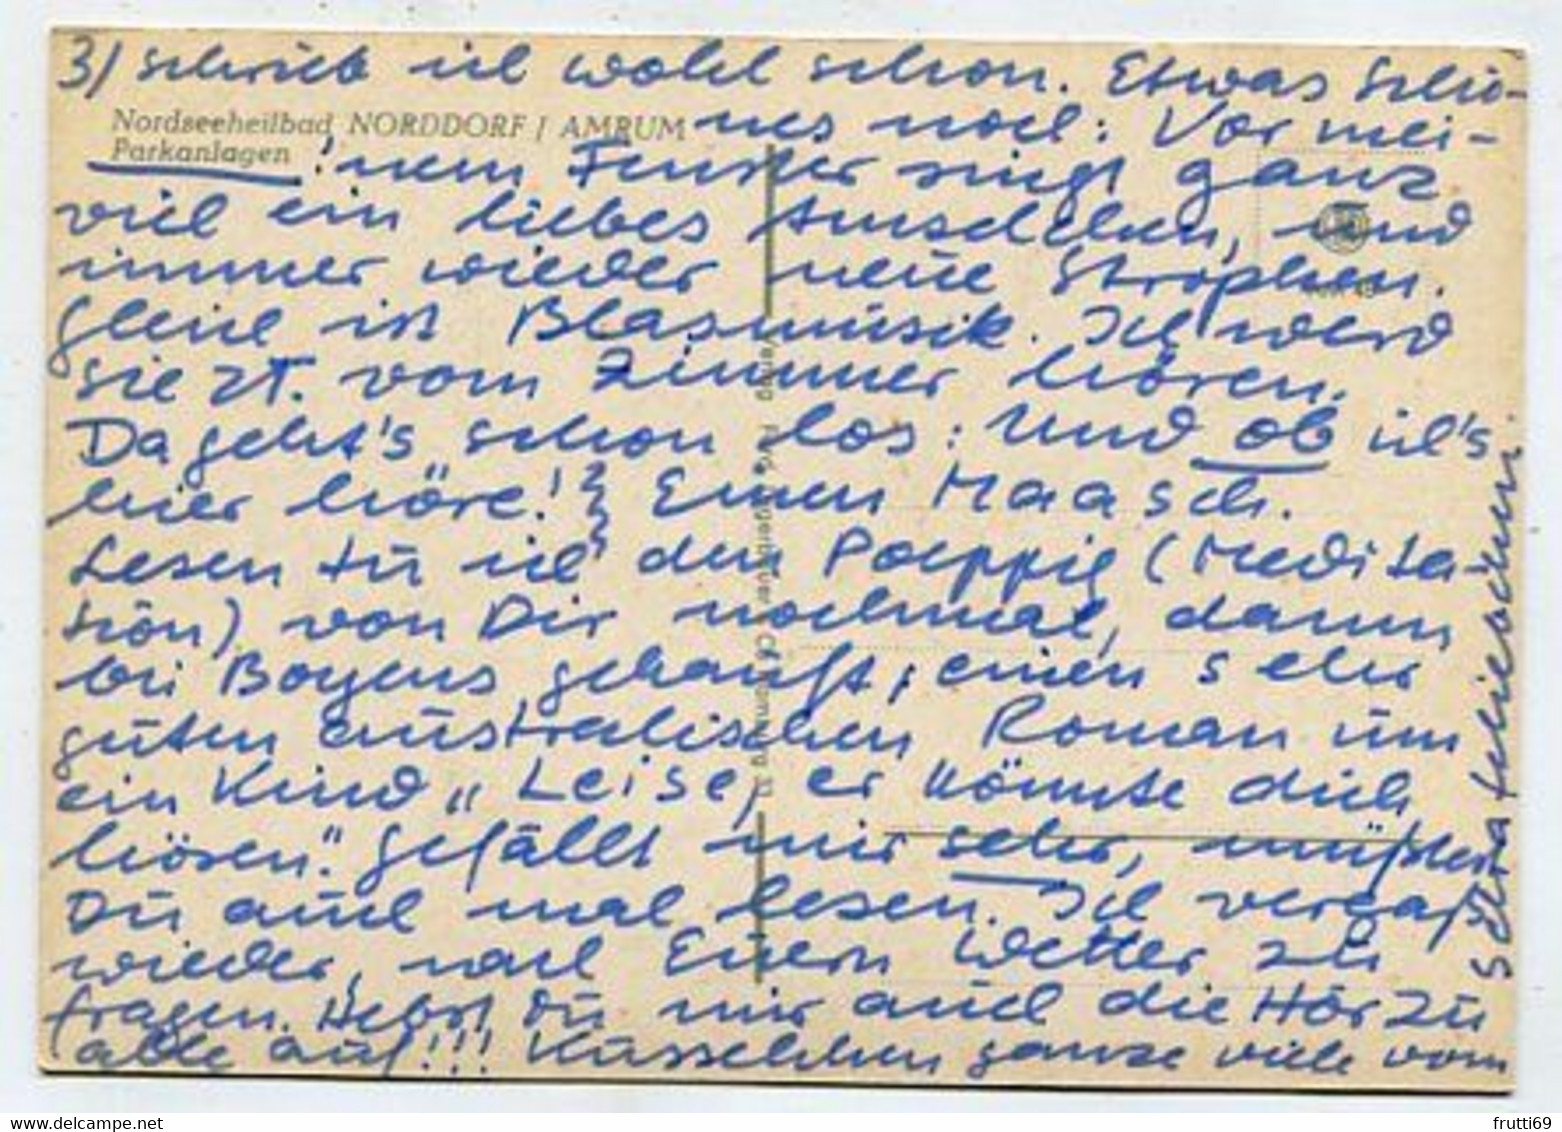 3) schrieb ich wohl schon. Etwas Schö-
Nordseeheilbad NORDDORF / AMRUM
Parkanlagen
nes noch: Vor mei-
! nem Fenster singt ganz
viel ein liebes Amselchen, und
immer wieder neue Strophen.
Gleich ist Blasmusik. Ich werd
sie zT. vom Zimmer hören.
Da geht's schon los: Und ob ich's
hier höre! Einen Maasch.
Lesen tu ich den Poeppig (Medita-
tion) von Dir nochmal, dann,
bei Boyens gekauft, einen sehr
guten australischen Roman um
ein Kind „Leise, er könnte dich
hören." Gefällt mir sehr, müßtest
Du auch mal lesen. Ich vergaß
wieder, nach Euerm Wetter zu
fragen. Hebst Du mir auch die Hör Zu
alle auf!!! Küsschen ganze viele vom
Verlag
Hamburg 33
frutti69